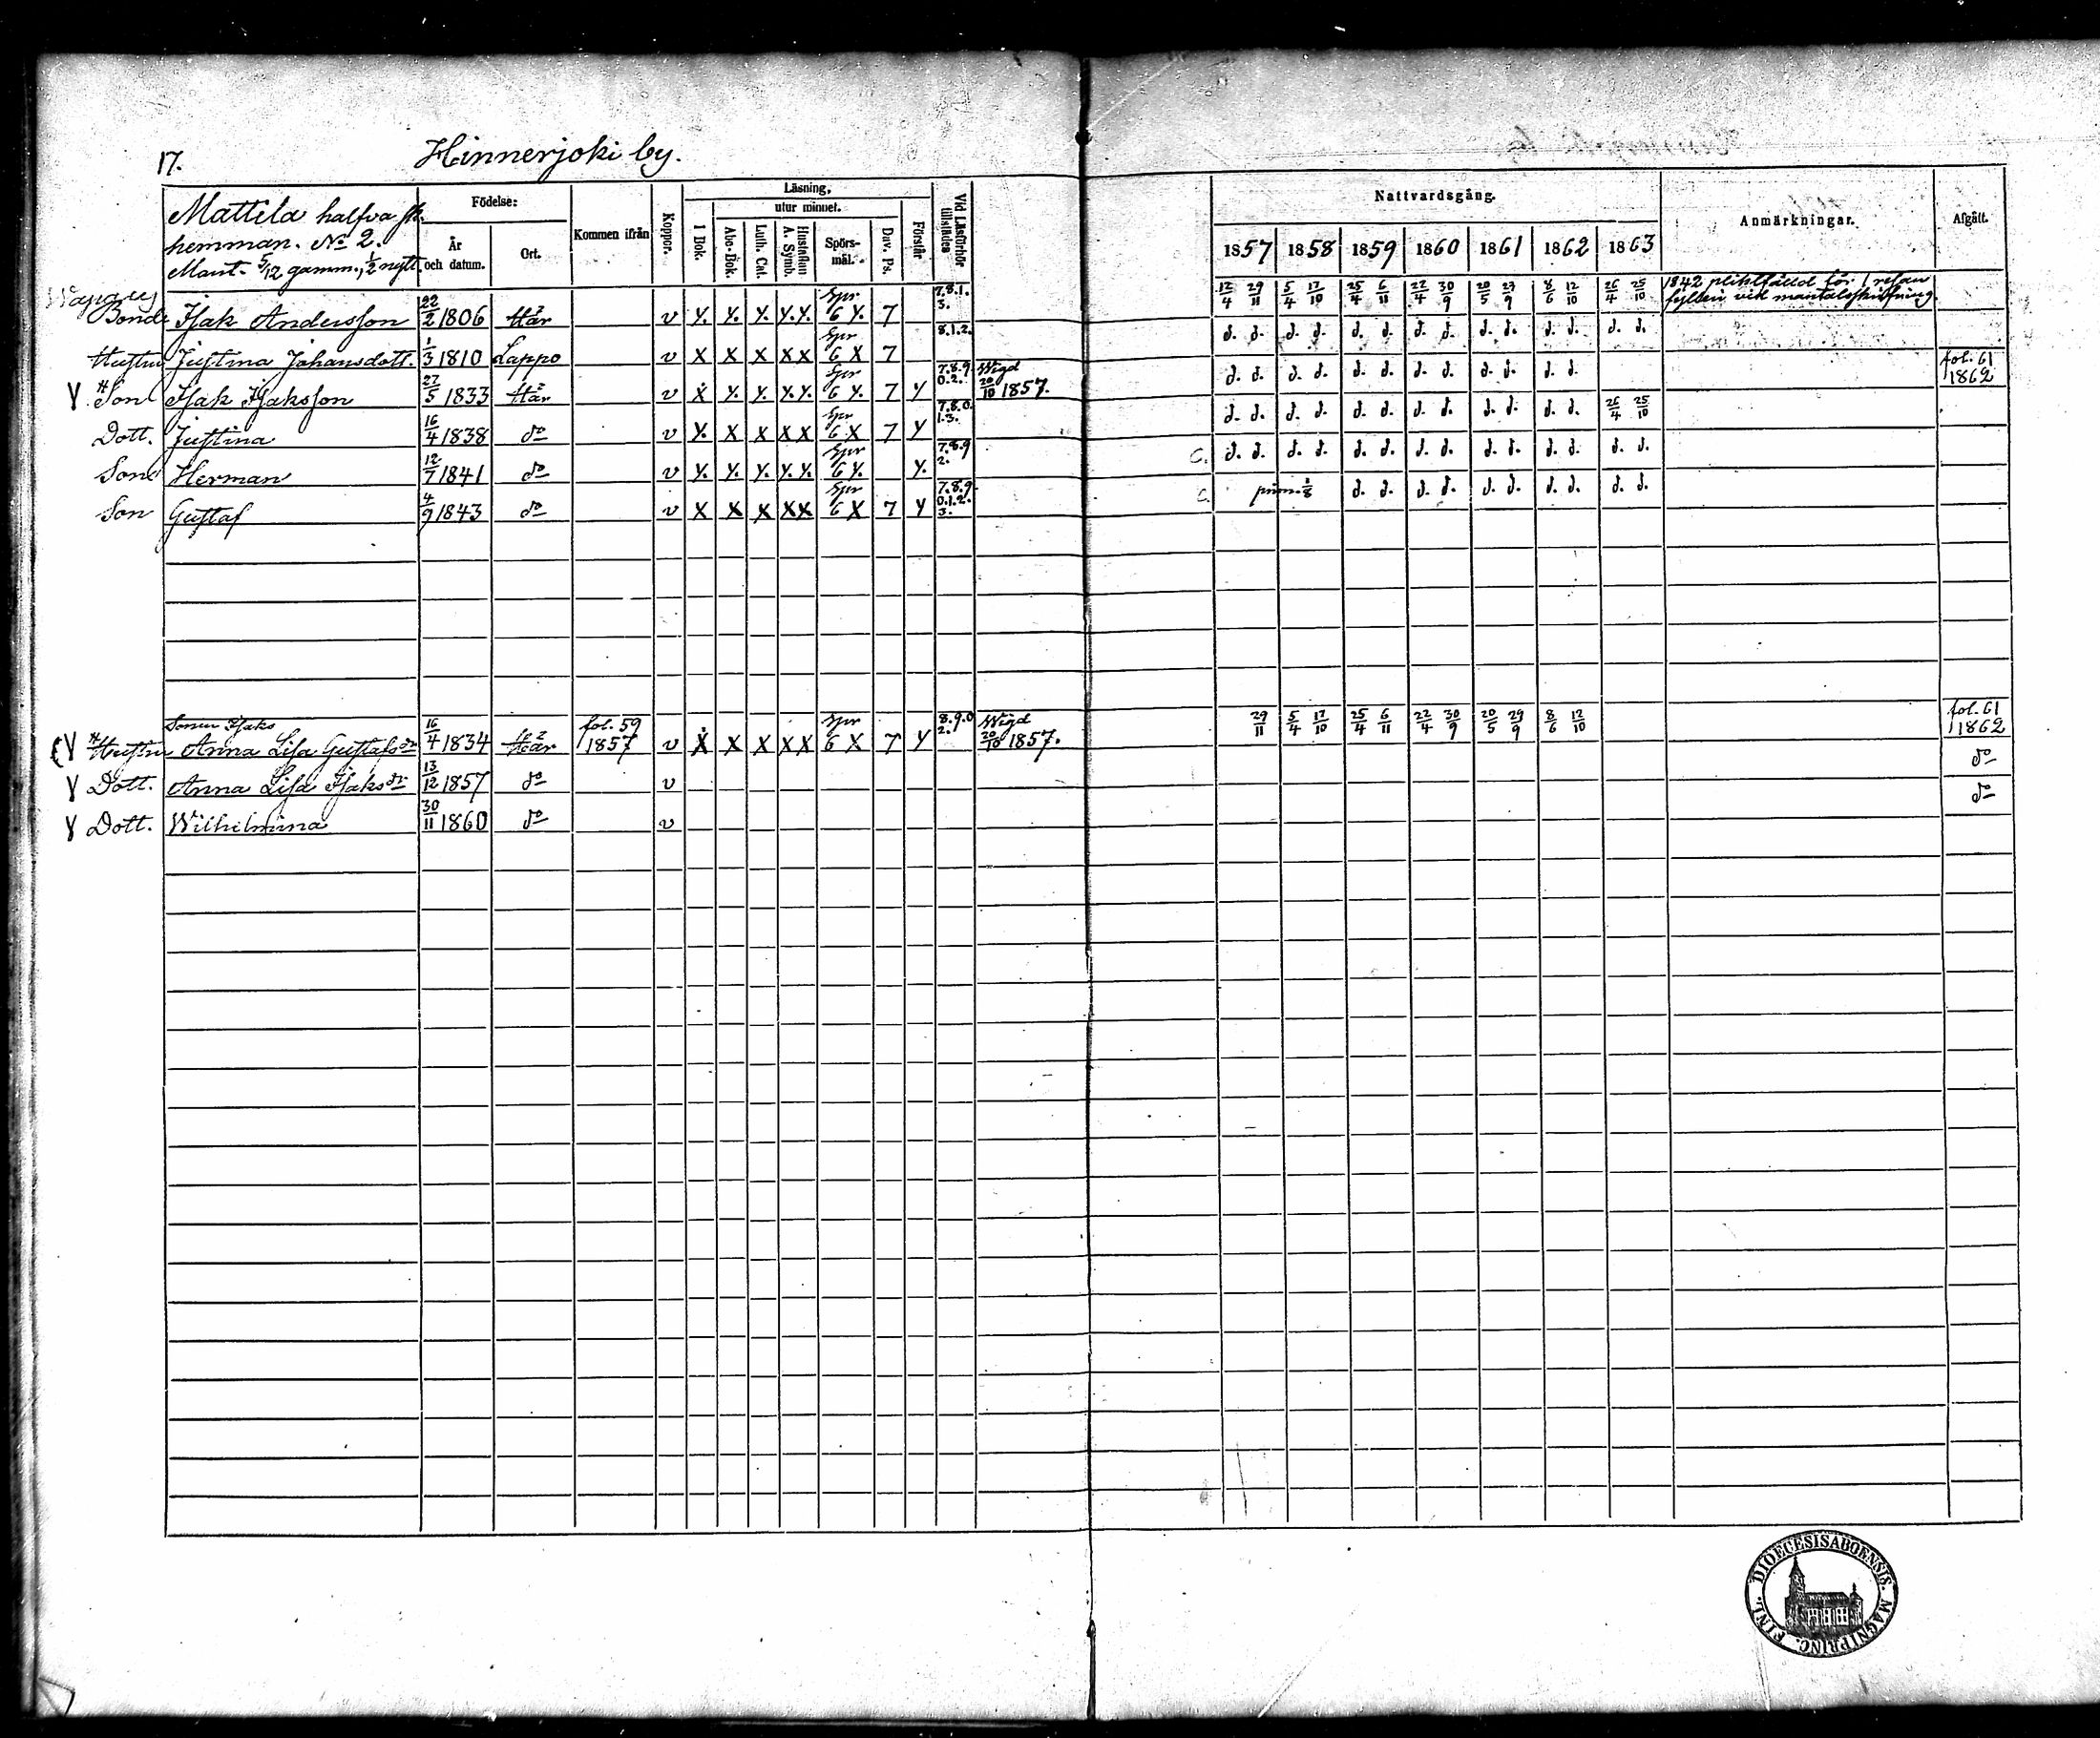 17. Hinnerjoki by.
Mattila halfva sk.
hemman. No 2.
Mant. 5/12 gamm., 1/2 nytt.
Födelse:
År och datum.
Ort.
Kommen ifrån
Koppor.
Läsning,
utur minnet.
I Bok.
Abc-Bok.
Luth. Cat.
Hustaflan A. Symb.
Spörsmål.
Dav. Ps.
Förstår
Vid Läsförhör tillstädes
Nattvardsgång.
1857 1858 1859 1860 1861 1862 1863
Anmärkningar.
Afgått.
Bonde Isak Andersson 22/2 1806 Här v Y. Y. Y. Y.Y. Spr 6 Y. 7 7.8.1.3. 12/4 29/11 5/4 17/10 25/4 6/11 22/4 30/9 20/5 29/9 8/6 12/10 26/4 25/10 1842 för
vid mantalsskrifning.
Hustru Justina Johansdott. 1/3 1810 Lappo v X X X XX Spr 6 X 7 8.1.2. d. d. d. d. d. d. d. d. d. d. d. d. d. d.
Son Isak Isaksson 27/5 1833 Här v X Y. Y. Y.Y. Spr 6 Y. 7 Y 7.8.9.0.2. Wigd 20/10 1857. d. d. d. d. d. d. d. d. d. d. d. d. fol. 61 1862
Dott. Justina 16/4 1838 do v Y. X X XX Spr 6 X 7 Y 7.8.0.1.3. d. d. d. d. d. d. d. d. d. d. d. d. 26/4 25/10
Son Herman 12/7 1841 do v Y. Y. Y. Y.Y. Spr 6 Y. Y. 7.8.9 2. C. d. d. d. d. d. d. d. d. d. d. d. d. d. d.
Son Gustaf 4/9 1843 do v X X X XX Spr 6 X 7 Y 7.8.9.0.1.2.3. C. prim. 1/8 d. d. d. d. d. d. d. d. d. d.
Sonen Isaks
Hustru Anna Lisa Gustafsdr 16/4 1834 Här fol. 59 1857 v X X X XX Spr 6 X 7 Y 8.9.0 2. Wigd 20/10 1857. 29/11 5/4 17/10 25/4 6/11 22/4 30/9 20/5 29/9 8/6 12/10 fol. 61 1862
Dott. Anna Lisa Isaksdr 13/12 1857 do v do
Dott. Wilhelmina 30/11 1860 do v do
DIOECESIS ABOENSIS. MAGNI PRINC. FINL.